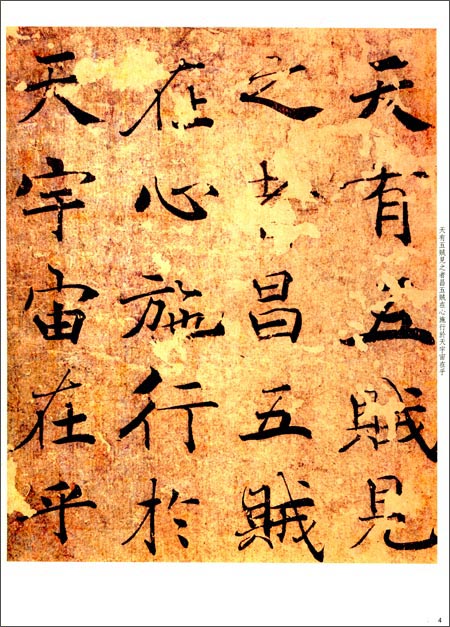 天有五賊見
之者昌五賊
在心施行於
天宇宙在乎
天有五賊見之者昌五賊在心施行於天宇宙在乎
4